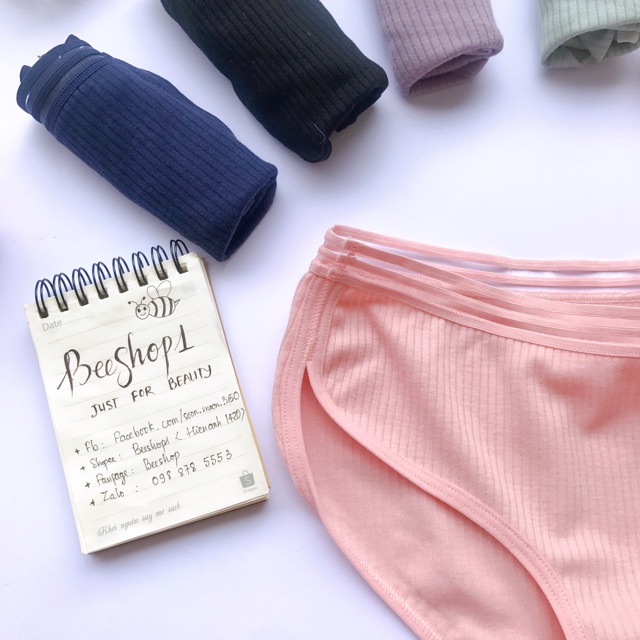 Date
BeeShop1
JUST FOR BEAUTY
+ Fb: Facebook.com/
+ Shopee: Beeshop1
+ Fanpage: Beeshop
+ Zalo : 098 878 5553
Khơi nguồn say mê sách